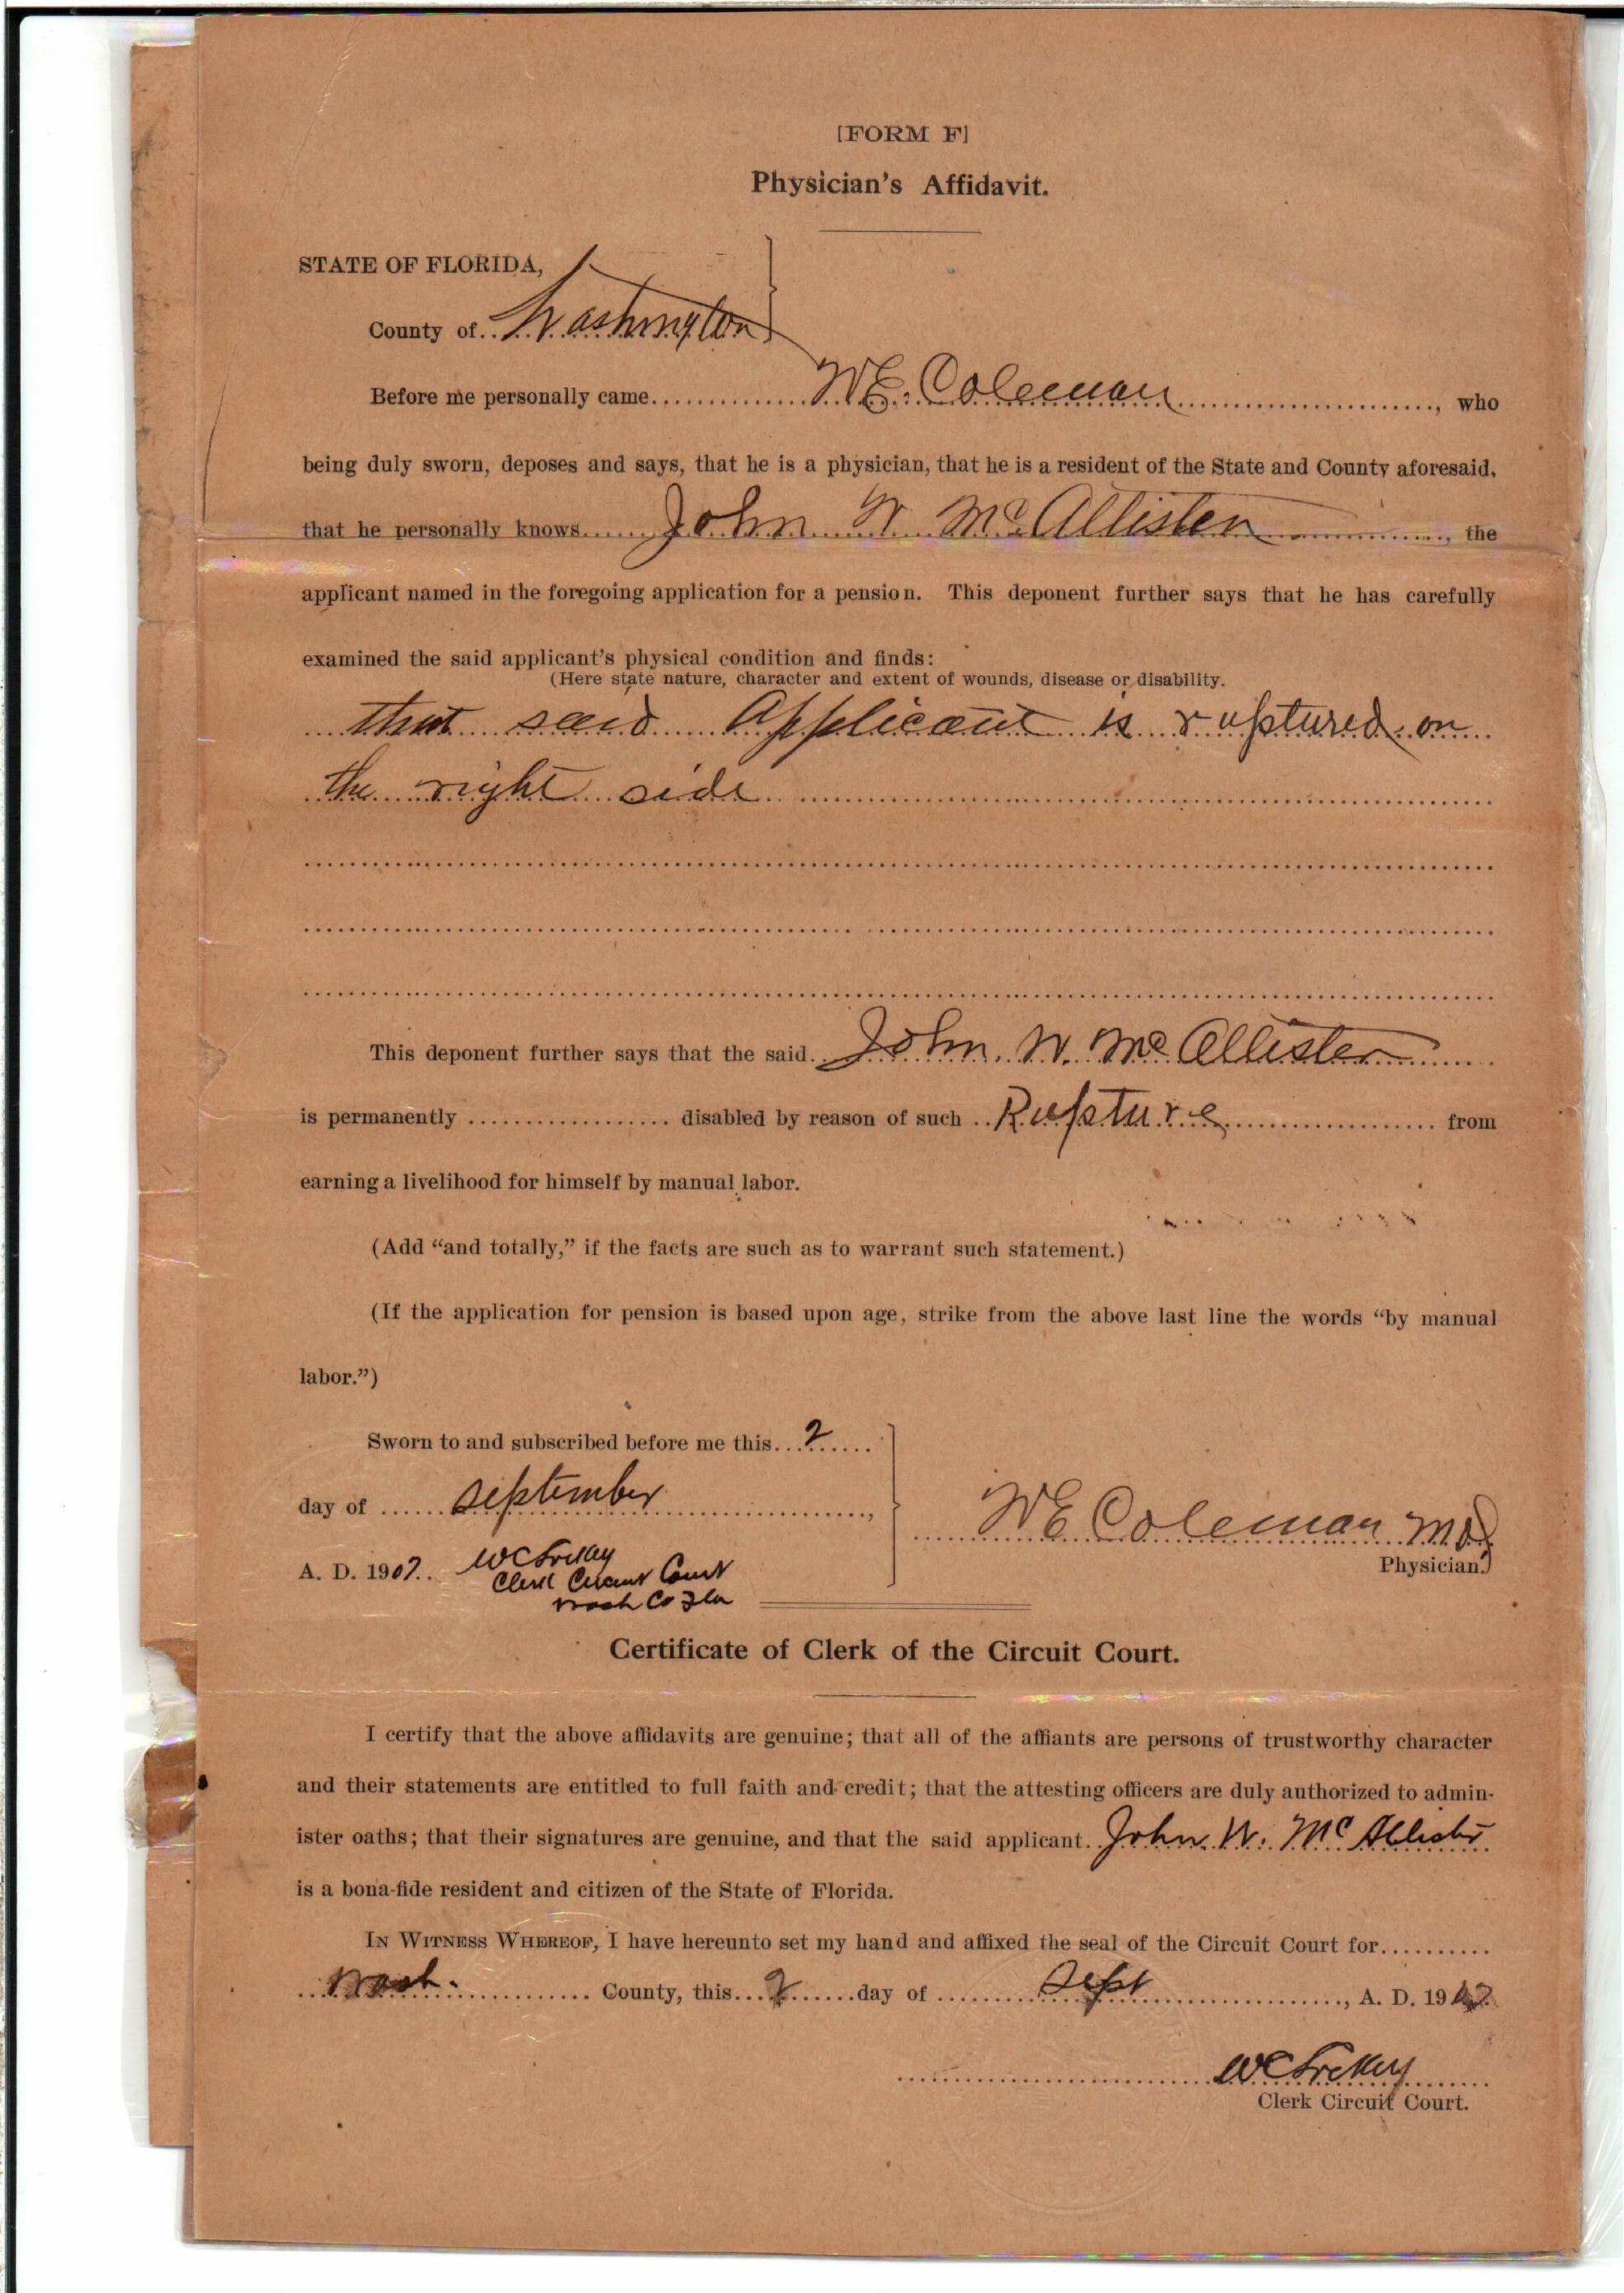 [FORM F]
Physician's Affidavit.
STATE OF FLORIDA,
County of Washington
Before me personally came W E. Coleman, who
being duly sworn, deposes and says, that he is a physician, that he is a resident of the State and County aforesaid,
that he personally knows John W McAllister, the
applicant named in the foregoing application for a pension. This deponent further says that he has carefully
examined the said applicant's physical condition and finds:
(Here state nature, character and extent of wounds, disease or disability.
that said Applicant is ruptured on
the right side
This deponent further says that the said John. W. McAllister
is permanently disabled by reason of such Rupture from
earning a livelihood for himself by manual labor.
(Add "and totally," if the facts are such as to warrant such statement.)
(If the application for pension is based upon age, strike from the above last line the words "by manual
labor.")
Sworn to and subscribed before me this 2
day of September,
W E Coleman MD
Physician.
A. D. 1907. W C
Clerk Circuit Court
Wash Co Fla
Certificate of Clerk of the Circuit Court.
I certify that the above affidavits are genuine; that all of the affiants are persons of trustworthy character
and their statements are entitled to full faith and credit; that the attesting officers are duly authorized to admin-
ister oaths; that their signatures are genuine, and that the said applicant John. W. McAllister
is a bona-fide resident and citizen of the State of Florida.
IN WITNESS WHEREOF, I have hereunto set my hand and affixed the seal of the Circuit Court for
Wash. County, this 2 day of Sept, A. D. 19
W C
Clerk Circuit Court.